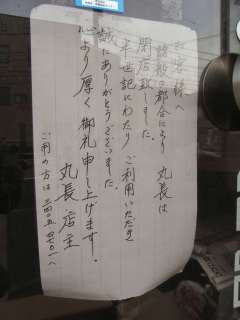 お客様へ
諸般の都合により 丸長は
閉店致しました。
半世紀にわたり ご利用いただき
誠にありがとうございました
心より厚く御礼申し上げます。
丸長 店主
ご用の方は 三四〇五 四七〇一へ